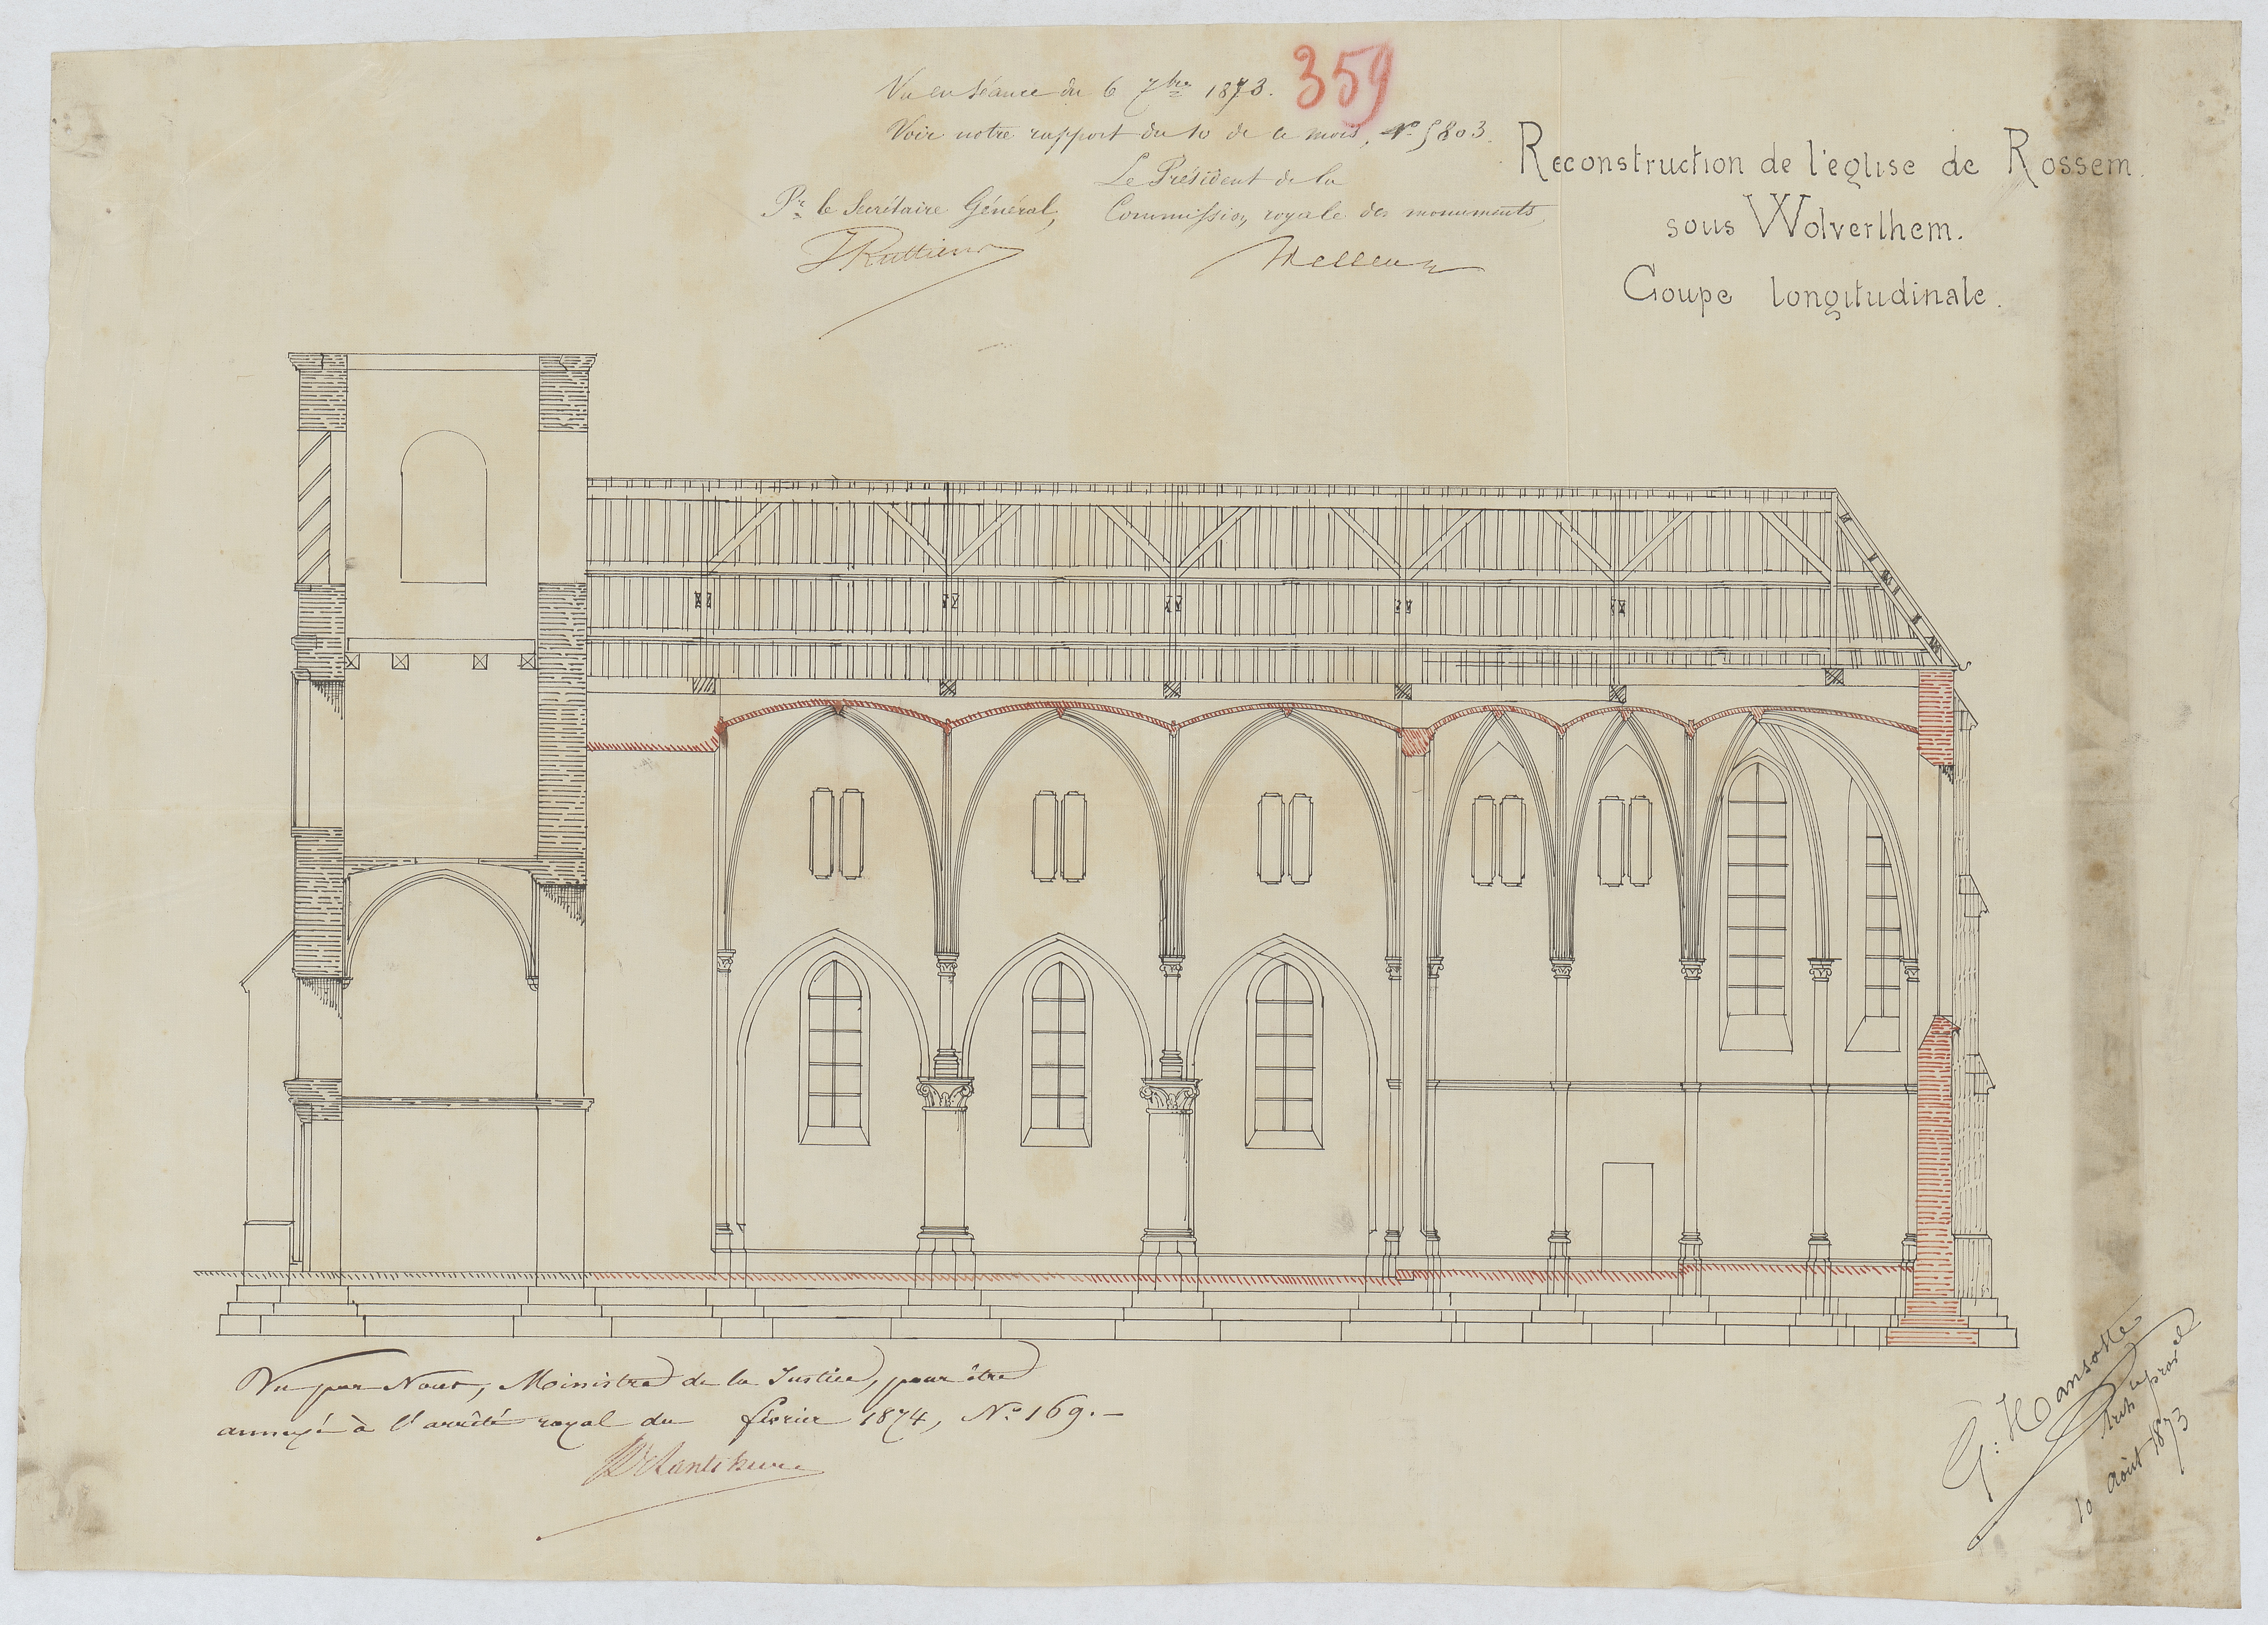 359
Vu en séance du 6 7bre 1873.
Voir notre rapport du 10 de ce mois, No 5803.
Le Président de la
Pr. le Secrétaire Général, Commission royale des monuments,
Reconstruction de l'église de Rossem.
sous Wolverthem.
Coupe longitudinale.
Vu par Nous, Ministre de la Justice, pour être
annexé à l'arrêté royal du février 1874, No 169.-
G: Hansotte
Arch te proval
10 Août 1873